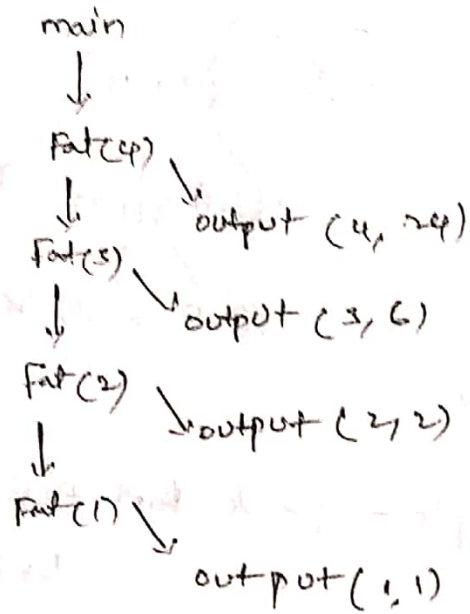 main
Fat(4)
output (4, 24)
Fat(3)
output (3, 6)
Fat (2)
output (2, 2)
Fat(1)
output(1, 1)